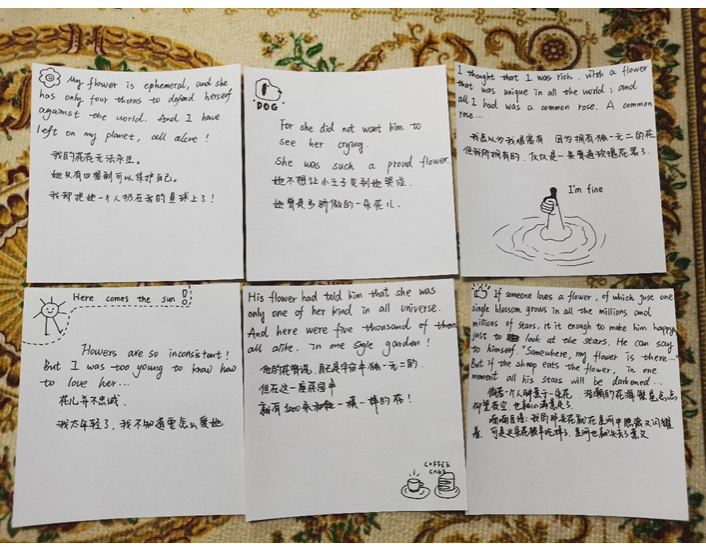 My flower is ephemeral, and she
has only four thorns to defend herself
against the world. And I have
left on my planet, all alone!
我的花在无法永生。
她只有四根刺可以保护自己。
我却把她一个人扔在我的星球上了!
DOG
For she did not want him to
see her crying.
She was such a proud flower
她不想让小王子见到她哭泣.
她曾是多骄傲的一朵花儿.
I thought that I was rich, with a flower
that was unique in all the world; and
all I had was a common rose. A common
rose...
我虽以为我很富有, 因为拥有独一无二的花
但我所拥有的, 仅仅是一朵普通玫瑰花罢了.
I'm fine
Here comes the sun!
Flowers are so inconsistant!
But I was too young to know how
to love her...
花儿并不忠诚.
我太年轻了, 我不知道要怎么爱她
His flower had told him that she was
only one of her kind in all universe.
And here were five thousand of them
all alike, in one sigle garden!
他的花曾说, 自己是宇宙中独一无二的.
但在这一座花园中
就有5000朵和她一模一样的花!
COFFEE
CAKE
If someone loves a flower, of which just one
single blossom grows in all the millions and
millions of stars, it it enough to make him happy
just to look at the stars. He can say
to himself "Somewhere, my flower is there..."
But if the sheep eats the flower, in one
moment all his stars will be darkened...
倘若一个人钟意于一朵花
仰望夜空 也就心满意足了.
喃喃自语: 我的那朵花就
着. 可是这朵花被羊吃掉了, 星河也就失去了意义